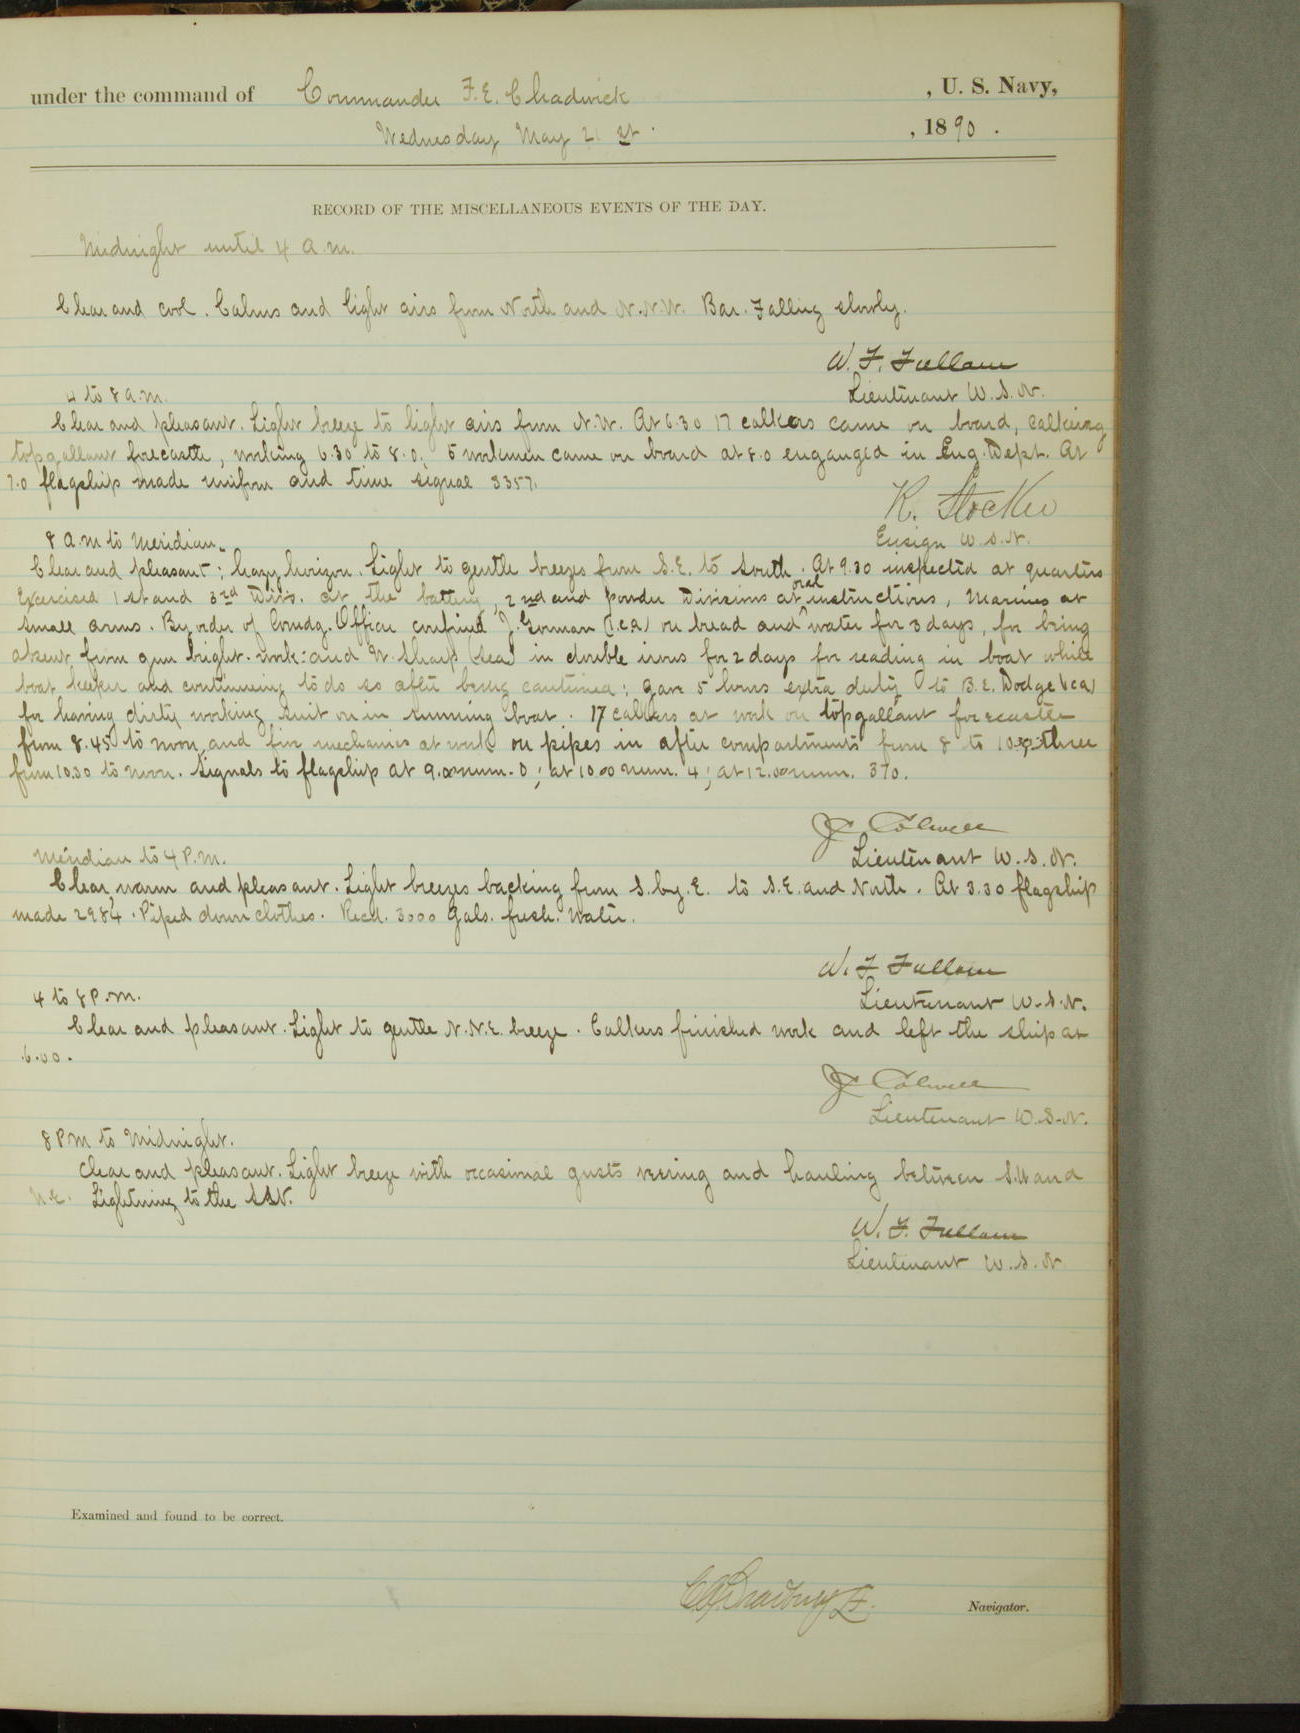 under the command of Commander F. E. Chadwick , U. S. Navy,
Wednesday May 21st . , 1890 .
RECORD OF THE MISCELLANEOUS EVENTS OF THE DAY.
Midnight until 4 a.m.
Clear and cool. Calms and light airs from North and N.N.W. Bar. Falling slowly.
W. F. Fullam
Lieutenant U.S.N.
4 to 8 a.m.
Clear and pleasant. Light breeze to light airs from N.W. At 6.30 17 calkers came on board, calking
topgallant forecastle, working 6.30 to 8.0; 5 workmen came on board at 8.0 enganged in Eng. Dept. At
7.0 flagship made uniform and time signal 3357.
R. Stocker
Ensign U.S.N.
8 a.m to Meridian.
Clear and pleasant; hazy horizon. Light to gentle breezes from S.E. to South. At 9.30 inspected at quarters
Exercised 1st and 3rd Divis. at the battery, 2nd and Powder Divisions at oral instructions, Marines at
small arms. By order of Comdg. Officer confined J. Gorman (sea) on bread and water for 3 days, for being
absent from gun bright-work: and W. Sharp (sea) in double irons for 2 days for reading in boat while
boat keeper and continuing to do so after being cautioned; gave 5 hours extra duty to B. E. Dodge (sea)
for having dirty working suit on in running boat. 17 calkers at work on topgallant forecastle
from 8.45 to noon, and five mechanics at work on pipes in after compartments from 8 to 10.30 three
from 10.30 to noon. Signals to flagship at 9.00 num. 0; at 10.00 num. 4; at 12.00 num. 370.
J C Colwell
Lieutenant U.S.N.
Meridian to 4 P.M.
Clear, warm and pleasant. Light breezes backing from S. by. E. to S.E. and North. At 3.30 flagship
made 2984. Piped down clothes. Recd. 3000 gals. fresh. Water.
W. F. Fullam
Lieutenant U.S.N.
4 to 8 P.M.
Clear and pleasant. Light to gentle N.N.E. breeze. Calkers finished work and left the ship at
6.00.
J C Colwell
Lieutenant U.S.N.
8 P.M to Midnight.
Clear and pleasant. Light breeze with occasional gusts veering and hauling between S.W and
N.E. Lightning to the SSW.
W. F. Fullam
Lieutenant U.S.N
Examined and found to be correct.
Navigator.